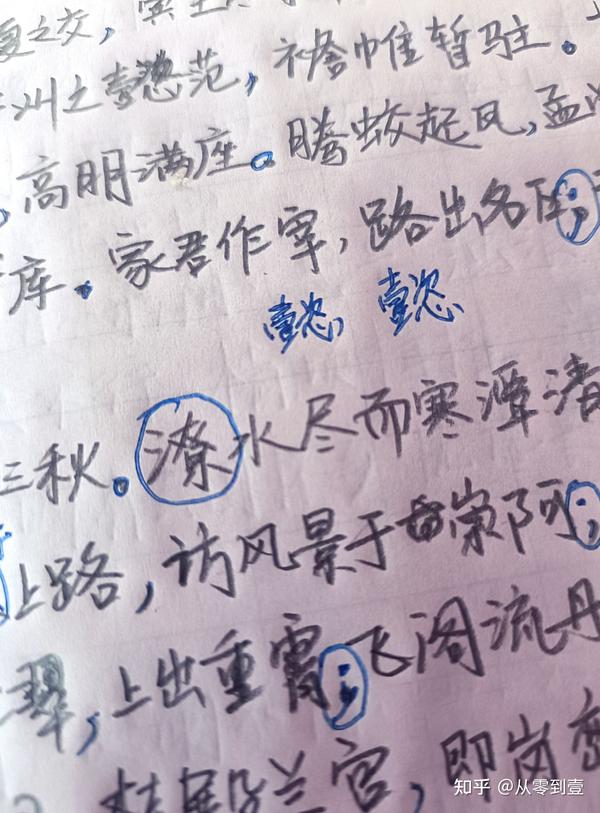 之交,
州之懿范,襜帷暂驻.
,高明满座。腾蛟起凤,孟
库.家君作宰,路出名区;
懿 懿
三秋.潦水尽而寒潭清
上路,访风景于崇阿;
翠,上出重霄;飞阁流丹
桂殿兰宫,即岗峦
知乎 @从零到壹